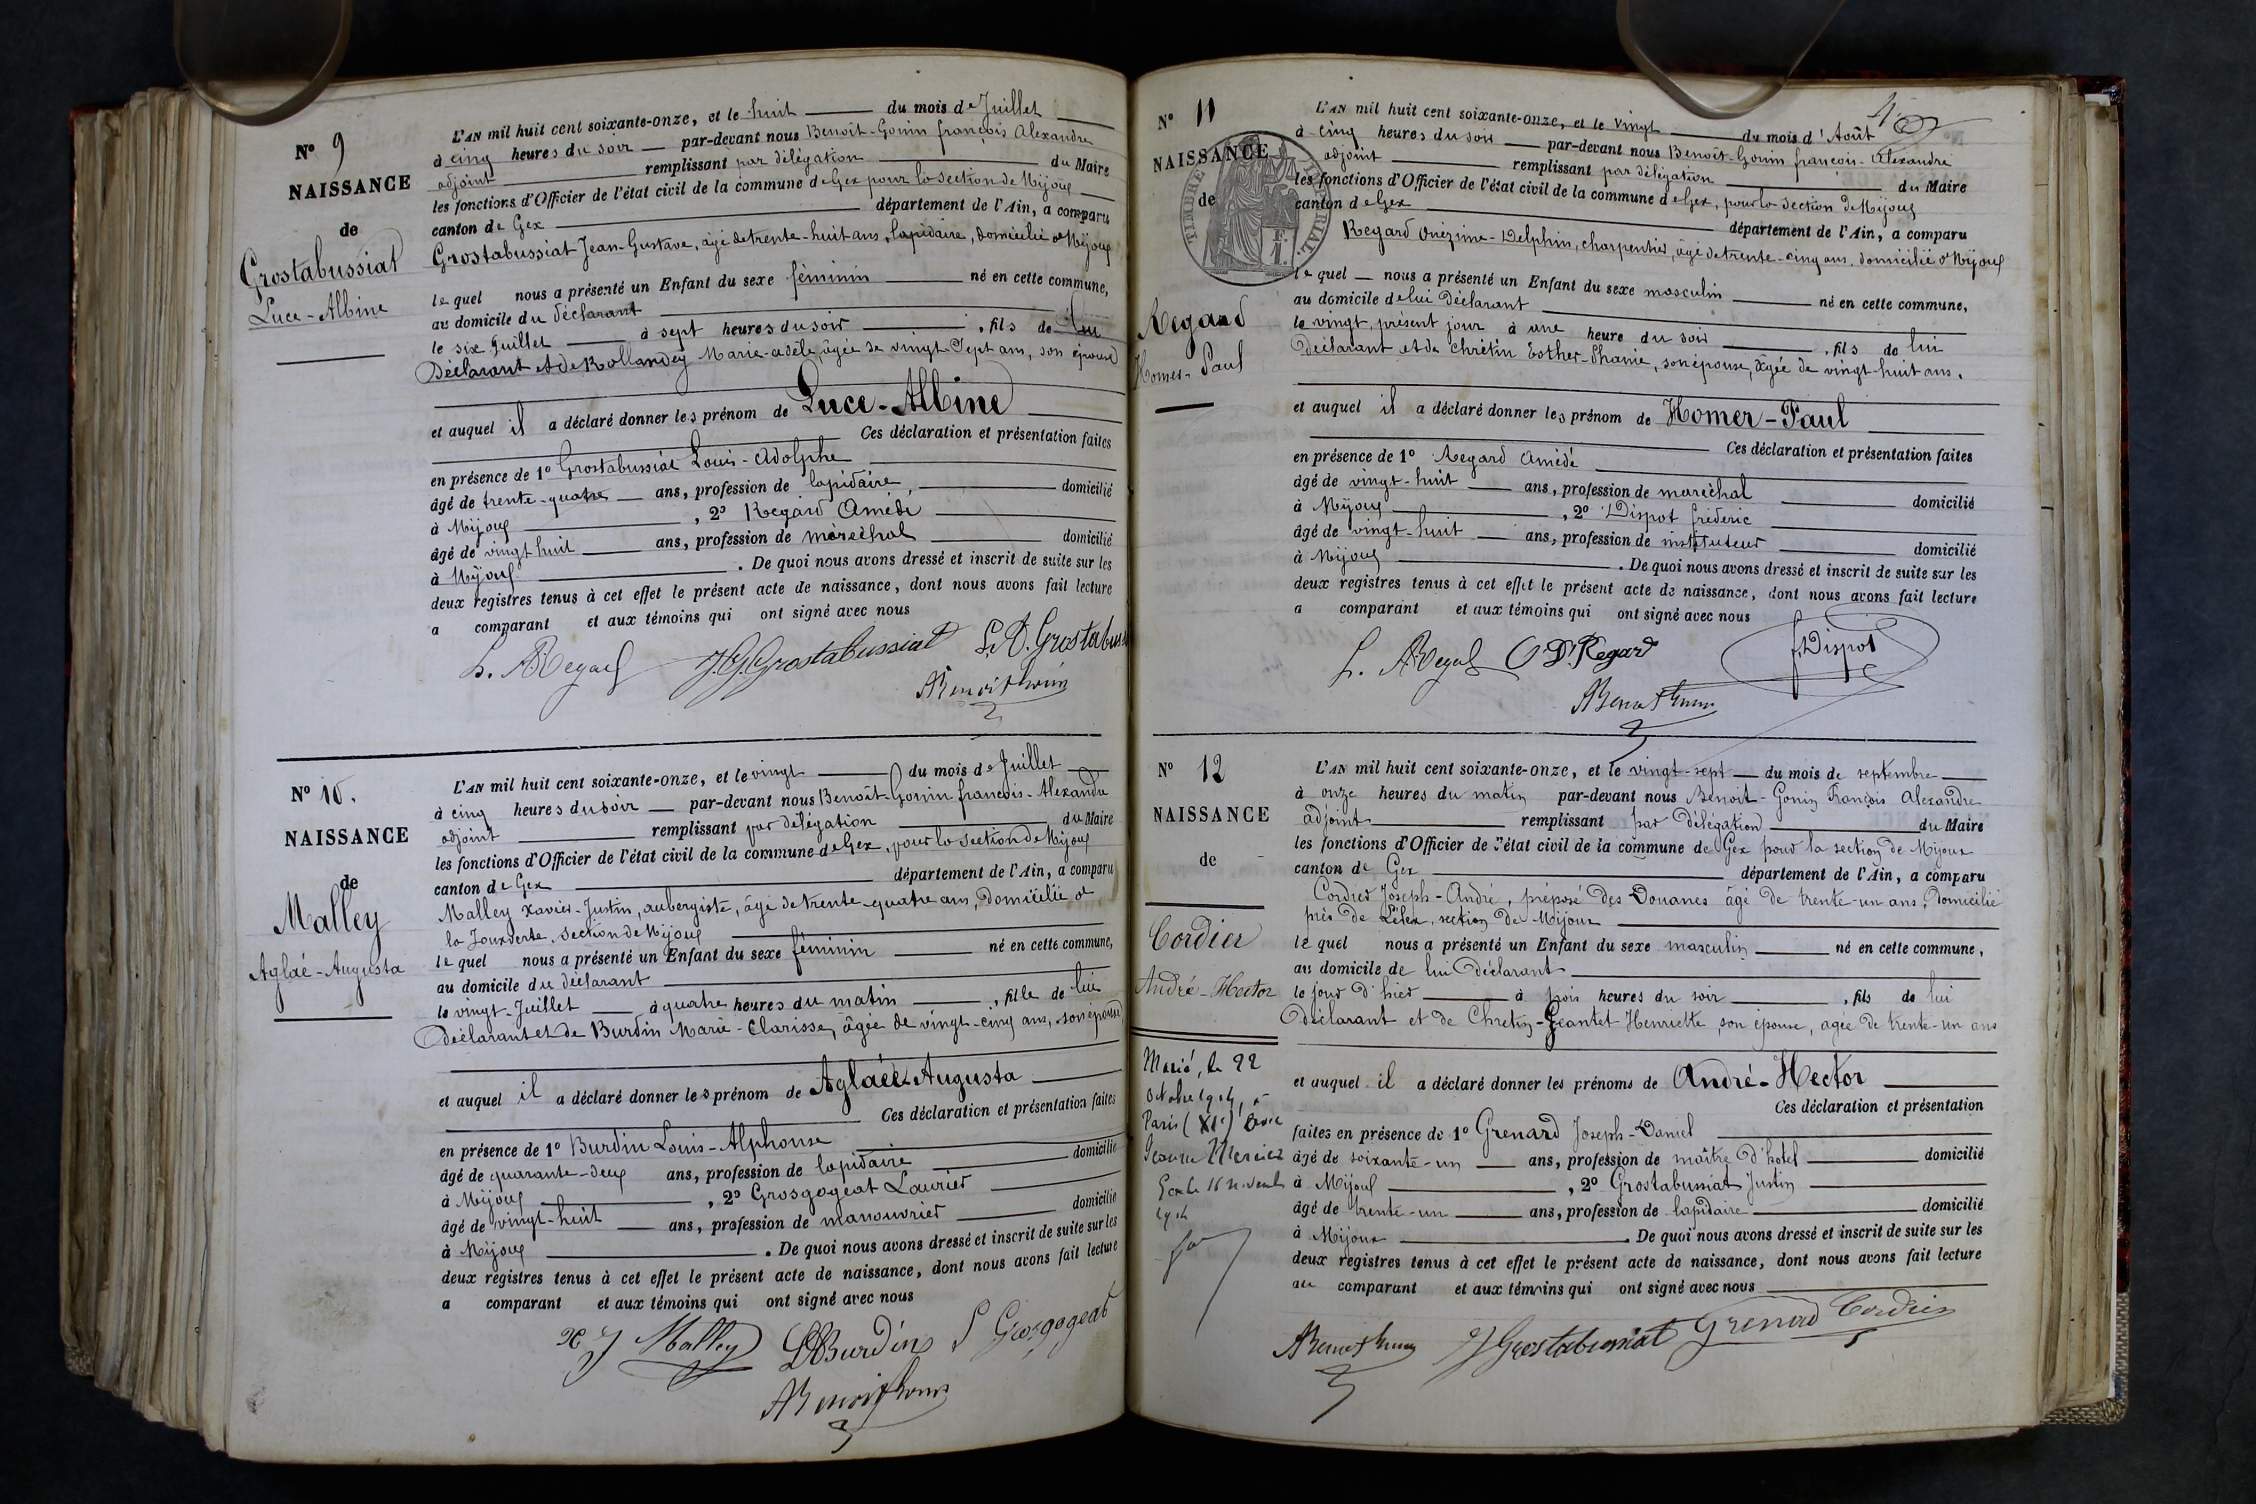 N° 9
NAISSANCE
de
Grostabussiat
Luce-Albine
L'AN mil huit cent soixante-onze, et le huit du mois de Juillet
à cinq heures du soir par-devant nous Benoit-Gonin françois Alexandre
adjoint remplissant par délégation du Maire
les fonctions d'Officier de l'état civil de la commune de Gex pour la section de Mijoux
canton de Gex département de l'Ain, a comparu
Grostabussiat Jean-Gustave, âgé de trente-huit ans, lapidaire, domicilié à Mijoux
lequel nous a présenté un Enfant du sexe féminin né en cette commune,
au domicile du déclarant
le six Juillet à sept heures du soir , fils de lui
Déclarant et de Rollandez Marie-adèle, âgée de vingt sept ans, son épouse
et auquel il a déclaré donner les prénom de Luce-Albine
Ces déclaration et présentation faites
en présence de 1° Grostabussiat Louis-Adolphe
âgé de trente-quatre ans, profession de lapidaire, domicilié
à Mijoux , 2° Regard Amédé
âgé de vingt huit ans, profession de maréchal domicilié
à Mijoux . De quoi nous avons dressé et inscrit de suite sur les
deux registres tenus à cet effet le présent acte de naissance, dont nous avons fait lecture
a comparant et aux témoins qui ont signé avec nous
h. A Regard J.G. Grostabussiat L.A. Grostabuss
A Benoit Gonin
N° 10.
NAISSANCE
de
Malley
Aglaé-Augusta
L'AN mil huit cent soixante-onze, et le vingt du mois de Juillet
à cinq heures du soir par-devant nous Benoit-Gonin françois-Alexandre
adjoint remplissant par délégation du Maire
les fonctions d'Officier de l'état civil de la commune de Gex, pour la section de Mijoux
canton de Gex département de l'Ain, a comparu
Malley Xavier-Justin, aubergiste, âgé de trente-quatre ans, Domicilié à
la Jouxverte, section de Mijoux
lequel nous a présenté un Enfant du sexe féminin né en cette commune,
au domicile du déclarant
le vingt-Juillet à quatre heures du matin , fille de lui
Déclarant et de Burdin Marie-Clarisse, âgée de vingt-cinq ans, son épouse
et auquel il a déclaré donner les prénom de Aglaée-Augusta
Ces déclaration et présentation faites
en présence de 1° Burdin Louis-Alphonse
âgé de quarante-deux ans, profession de lapidaire domicilié
à Mijoux , 2° Grosgogeat Laurier
âgé de vingt-huit ans, profession de manouvrier domicilié
à Mijoux . De quoi nous avons dressé et inscrit de suite sur les
deux registres tenus à cet effet le présent acte de naissance, dont nous avons fait lecture
a comparant et aux témoins qui ont signé avec nous
X J Malley LABurdin L Grosgogeat
A Benoit Gonin
N° 11
NAISSANCE
de
TIMBRE IMPÉRIAL
Regard
Homer-Paul
L'AN mil huit cent soixante-onze, et le vingt du mois d'Août
à cinq heures du soir par-devant nous Benoit-Gonin françois-Alexandre
adjoint remplissant par délégation du Maire
les fonctions d'Officier de l'état civil de la commune de Gex, pour la section de Mijoux
canton de Gex département de l'Ain, a comparu
Regard Onézime-Delphin, charpentier, âgé de trente-cinq ans, domicilié à Mijoux
lequel nous a présenté un Enfant du sexe masculin né en cette commune,
au domicile de lui Déclarant
le vingt, présent jour à une heure du soir , fils de lui
Déclarant et de Chrétin Esther-Phanie, son épouse, âgée de vingt-huit ans.
et auquel il a déclaré donner les prénom de Homer-Paul
Ces déclaration et présentation faites
en présence de 1° Regard Amédé
âgé de vingt-huit ans, profession de maréchal domicilié
à Mijoux , 2° Dispot frédéric
âgé de vingt-huit ans, profession de instituteur domicilié
à Mijoux . De quoi nous avons dressé et inscrit de suite sur les
deux registres tenus à cet effet le présent acte de naissance, dont nous avons fait lecture
a comparant et aux témoins qui ont signé avec nous
h. A Regard O D. Regard f. Dispot
A Benoit Gonin
N° 12
NAISSANCE
de
Cordier
André-Hector
Marié, le 22
octobre 1914, à
Paris (XIe) avec
Jeanne Mercier
Gex le 16 novembre
1914
L'AN mil huit cent soixante-onze, et le vingt-sept du mois de septembre
à onze heures du matin par-devant nous Benoit-Gonin François Alexandre
adjoint remplissant par délégation du Maire
les fonctions d'Officier de l'état civil de la commune de Gex pour la section de Mijoux
canton de Gex département de l'Ain, a comparu
Cordier Joseph-André, préposé des Douanes âgé de trente-un ans, domicilié
près de Lélex, section de Mijoux
lequel nous a présenté un Enfant du sexe masculin né en cette commune,
au domicile de lui Déclarant
le jour d'hier à trois heures du soir , fils de lui
déclarant et de Chretin-Geantet Henriette, son épouse, agée de trente-un ans
et auquel il a déclaré donner les prénoms de André-Hector
Ces déclaration et présentation
faites en présence de 1° Grenard Joseph-Daniel
âgé de soixante-un ans, profession de maître d'hotel domicilié
à Mijoux , 2° Grostabussiat Justin
âgé de trente-un ans, profession de lapidaire domicilié
à Mijoux . De quoi nous avons dressé et inscrit de suite sur les
deux registres tenus à cet effet le présent acte de naissance, dont nous avons fait lecture
au comparant et aux témoins qui ont signé avec nous
A Benoit Gonin J Grostabussiat Grenard Cordier